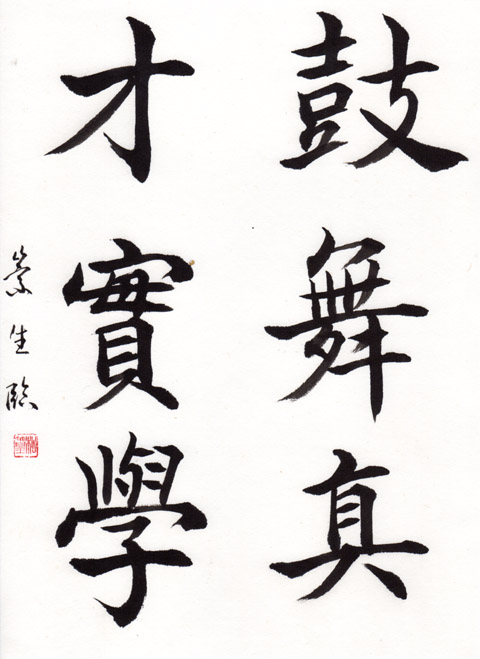 鼓舞真
才實學
崇生臨